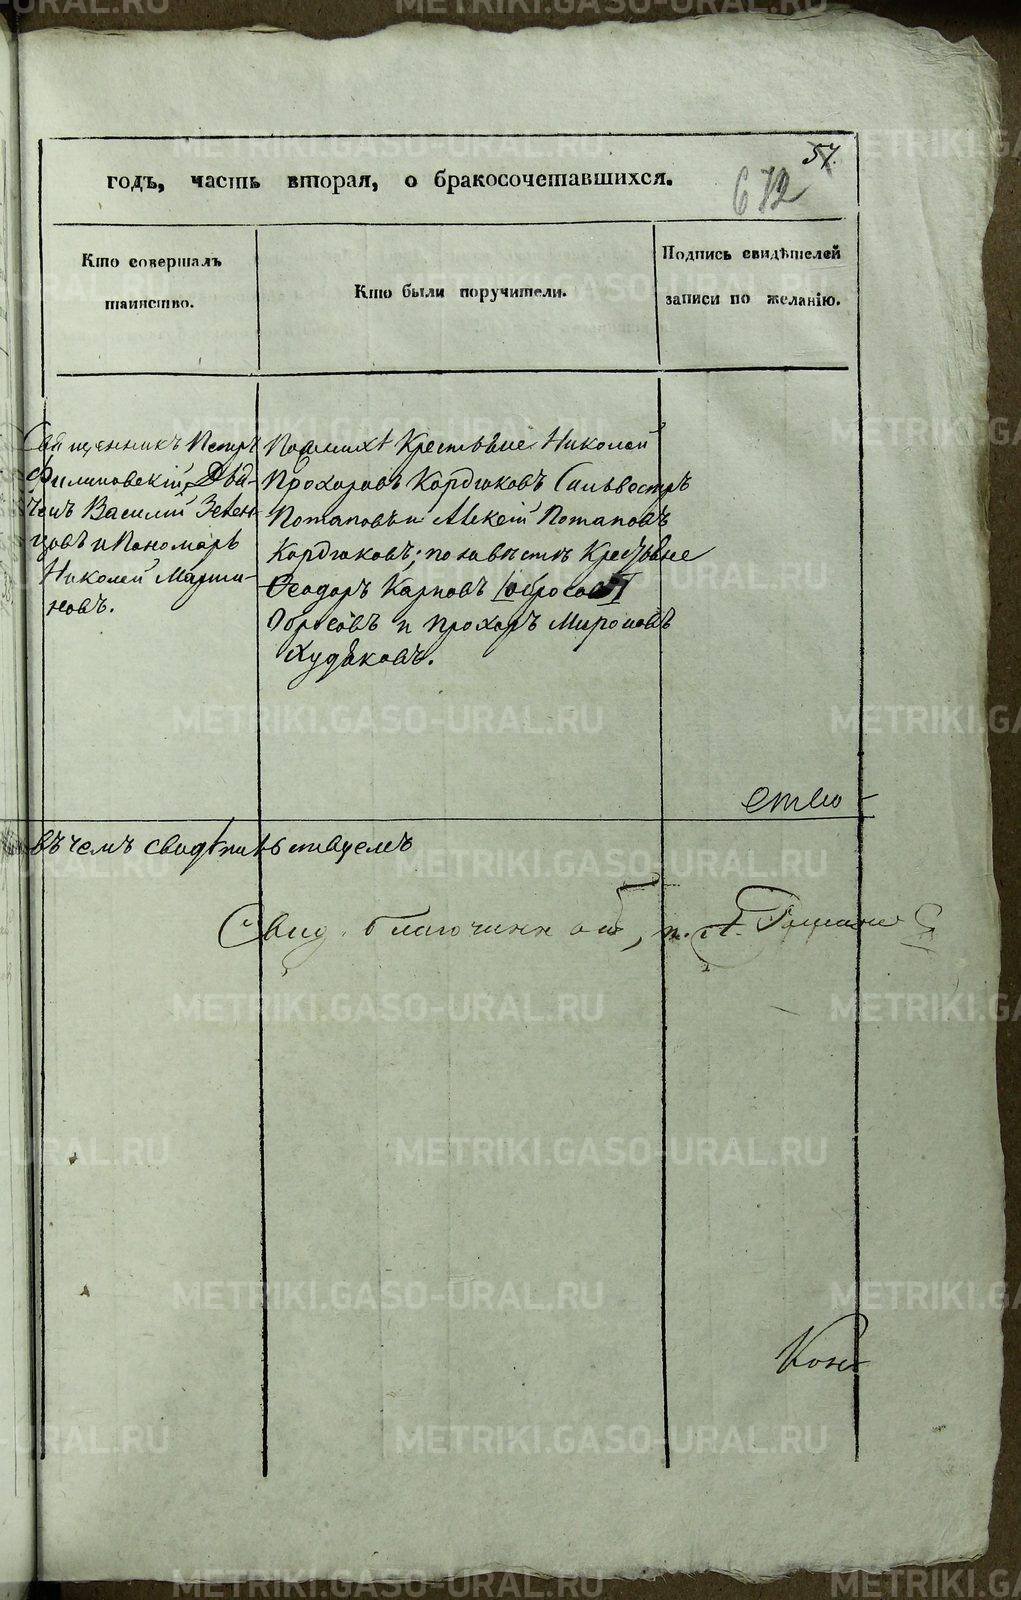 57.
672
годъ, часть вторая, о бракосочетавшихся.
Кто совершалъ
таинство.
Кто были поручители.
Подпись свидѣтелей
записи по желанію.
Священникъ Петръ
Филиповскій, Дья-
чекъ Василій Зевен-
цовъ и Пономарь
Николай Марти-
новъ.
По женихѣ Крестьяне Николай
Прохоровъ Кордюковъ Сильвестръ
Потаповъ и Алекѣй Потаповъ
Кордюковъ; по невѣстѣ Крестьяне
Ѳеодоръ Карповъ
Обросовъ и Прохоръ Мироновъ
Худяковъ.
ство
въ чемъ свидѣтельствуемъ
Свид. благочинн
Кон
METRIKI.GASO-URAL.RU